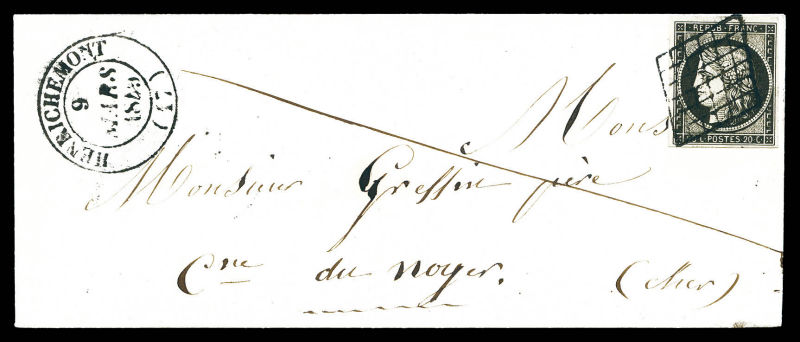 HENRICHEMONT (17)
9
MARS
1849
REPUB·FRANC·
20 C·POSTES 20·C
Mons
Monsieur Gressin père
Cne du noyer.
(cher)